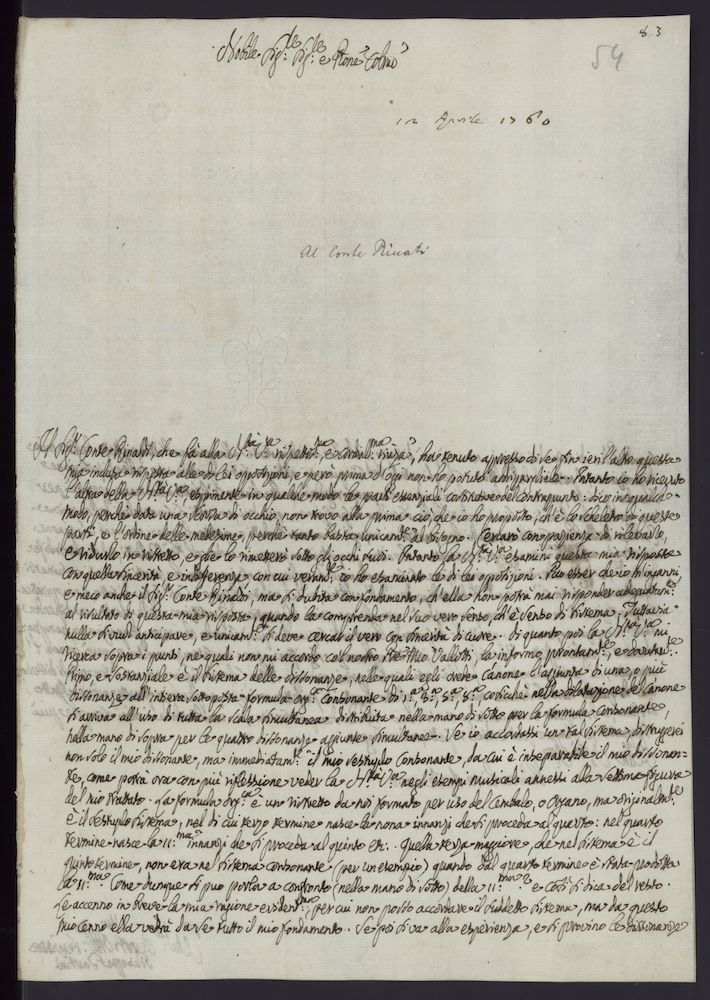 83
54
Nobile Sig.r Sig.r e Prone Colmo
12 Aprile 1760
Al Conte Riccati
Il Sig.r Conte Rinaldi, che fà alla S.V. rispett.ma, e cordial.ma riverza, ha tenuto appresso di se fin ieri l'altro questa
mia inclusa risposta alle di lei opposizioni, e però prima d'oggi non ho potuto spedirgliela. Intanto io ho ricevuto
l'altra della S.V. esprimente in qualche modo le parti essenziali costitutive del Contrapunto: dico in qualche
modo, perchè data una scorsa di occhio, non trovo alla prima ciò, che io ho proposto, ch'è lo scheletro di queste
parti, e l'ordine delle medesime, perchè tanto basta unicam.te al bisogno. Cercarò con pazienza di rilevarlo,
e ridurlo in ristretto, e glie lo rimetterò sotto gli occhi suoi. Intanto la S.V. esamini questa mia risposta
con quella sincerità, e indifferenza con cui veram.te io ho esaminato le di lei opposizioni. Può esser che io m'inganni,
e meco anche il Sig.r Conte Rinaldi, ma si dubita con fondamento, ch'ella non potrà mai risponder adequatam.te
al risultato di questa mia risposta, quando la comprenda nel suo vero senso, ch'è senso di sistema. Tuttavia
nulla si vuol anticipare, e unicam.te si deve cercar il vero con sincerità di cuore. Di quanto poi la S.V. mi
ricerca sopra i punti, ne quali non mi accordo col nostro P.re Mro Vallotti, la informo prontam.te, e
Primo, e sostanziale è il sistema delle dissonanze, nelle quali egli crede Canone l'aggiunta di una, o più
dissonanze all'intiera sottoposta formola org.ca consonante di 1.a, 3.a, 5.a, 8.a, cosichè nella dilatazione del Canone
si arriva all'uso di tutta la scala simultanea distribuita nella mano di sotto per la formola consonante,
nella mano di sopra per le quattro dissonanze aggiunte simultanee. Se io accordassi un tal sistema, distruggerei
non solo il mio dissonante, ma immediatam.te il mio sestuplo consonante, da cui è inseparabile il mio dissonan-
te, come potrà ora con più riflessione veder la S.V. negli esempi musicali annessi alla settima figura
del mio Trattato. La formola org.ca è un ristretto da noi formato per uso del Cembalo, o Organo, ma original.te
è il sestuplo sistema, nel di cui terzo termine nasce la nona innanzi che si proceda al quarto: nel quarto
termine nasce la 11.ma innanzi che si proceda al quinto etc. Quella terza maggiore, che nel sistema è il
quinto termine, non era nel sistema consonante (per un esempio) quando dal quarto termine è stata prodotta
la 11.ma. Come dunque si può porla a confronto (nella mano di sotto) della 11.ma? e così si dica del resto.
Le accenno in breve la mia ragione evident.ma, per cui non posso accordare il suddetto sistema, ma da questo
mio cenno ella vedrà da se tutto il mio fondamento. Se poi si va alla esperienza, e si provino le dissonanze